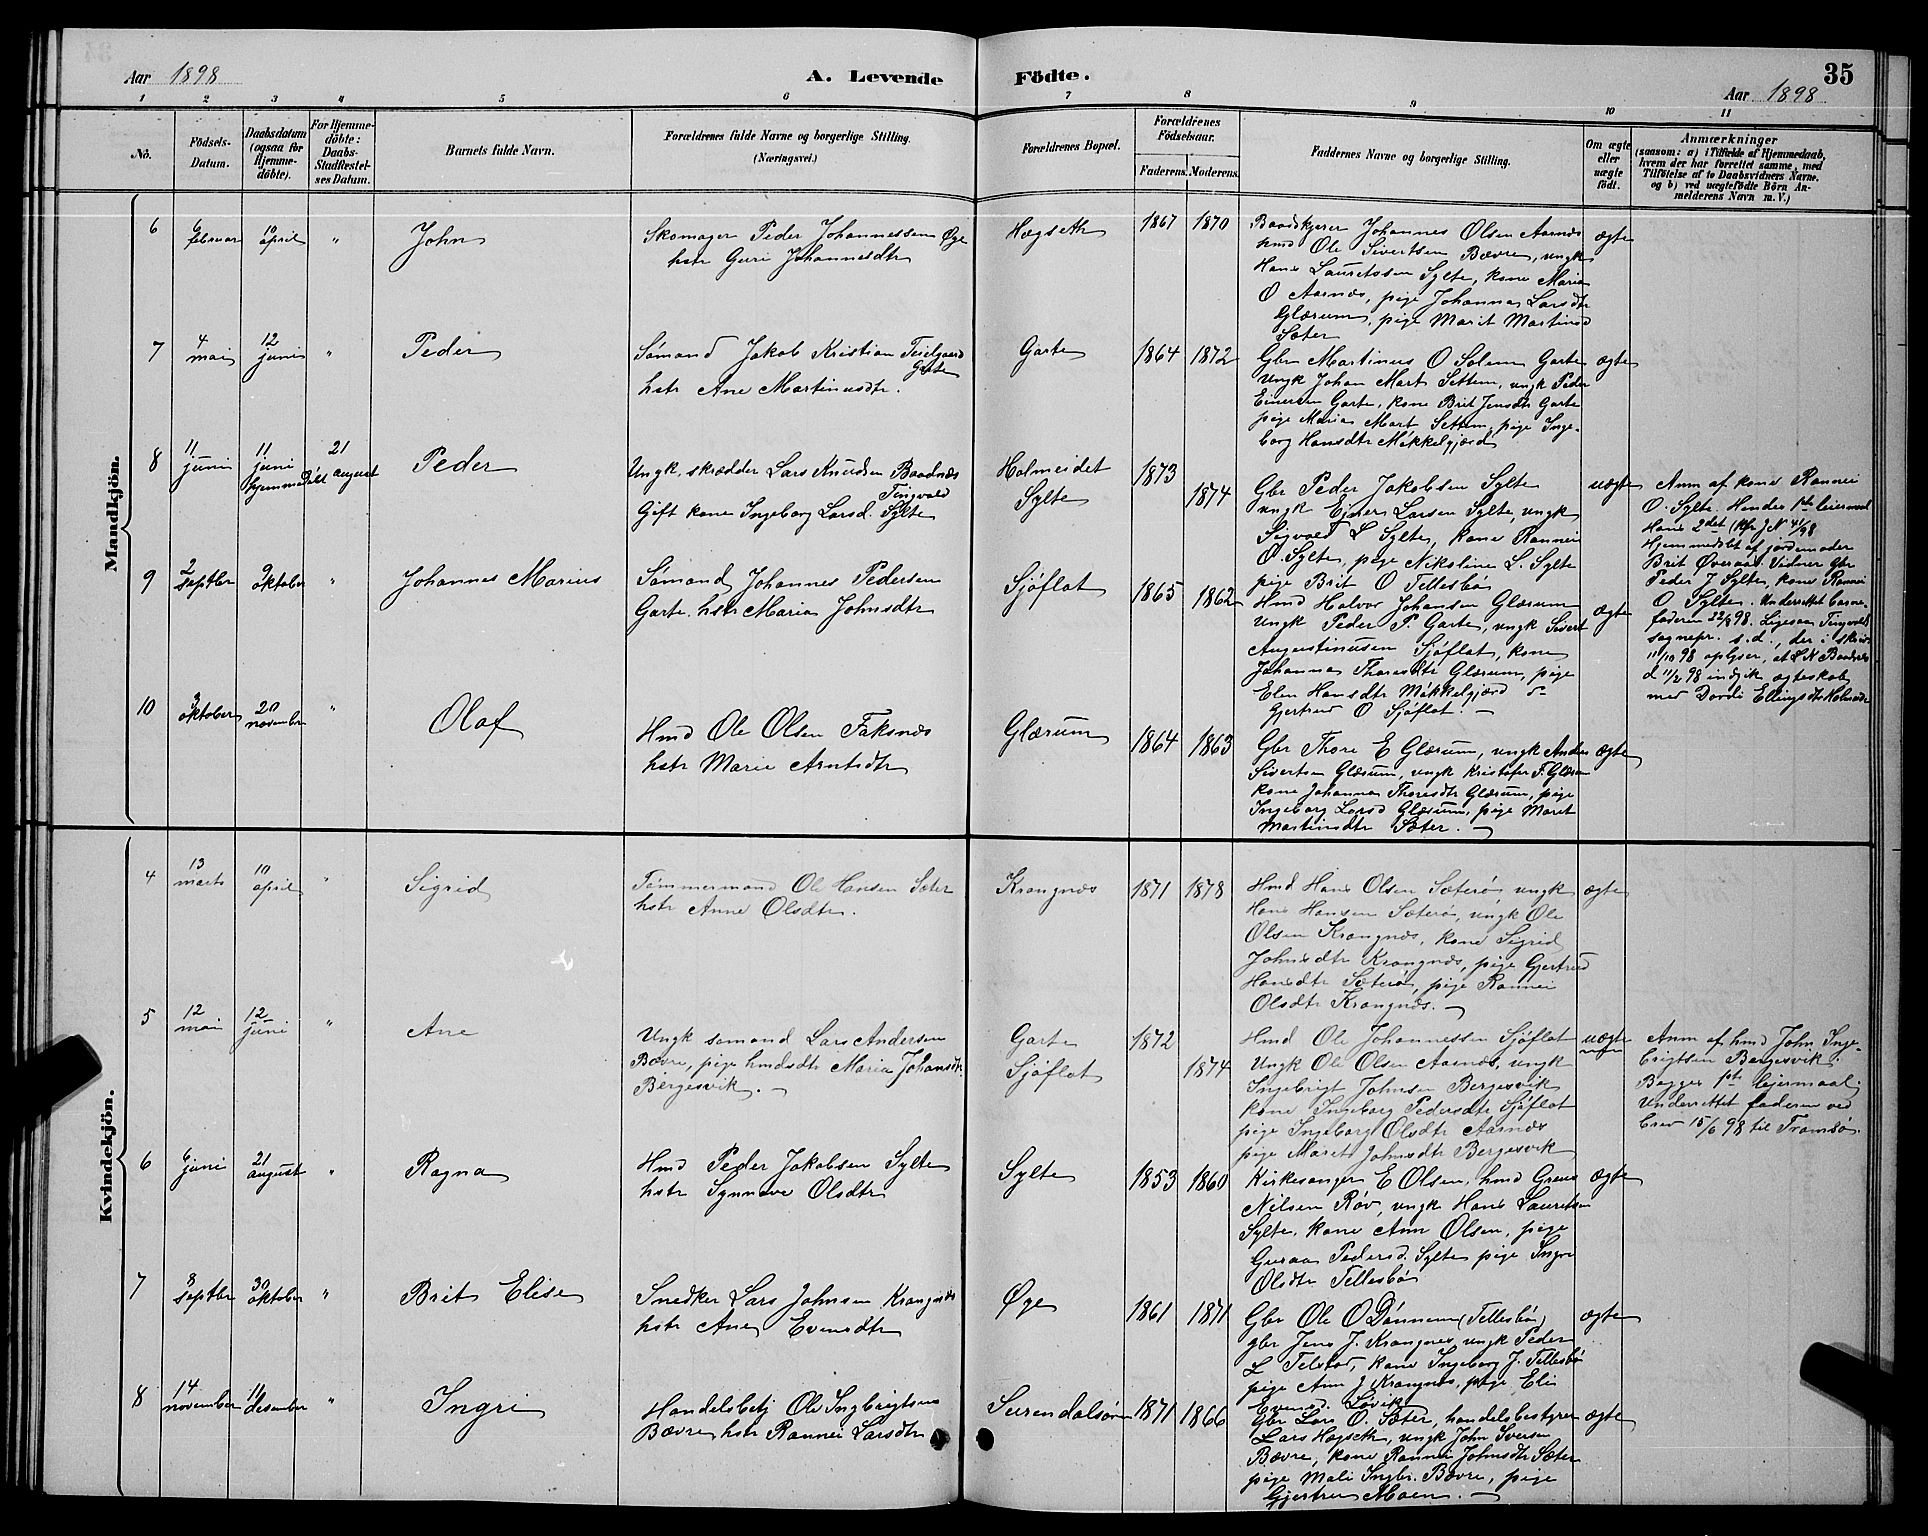 Aar 1898
A. Levende
Födte.
35
Aar 1898
1 2 3 4 5 6 7 8 9 10 11
No.
Födsels-
Datum.
Daabsdatum
(ogsaa for
Hjemme-
döbte).
For Hjemme-
döbte:
Daabs-
Stadfæstel-
ses Datum.
Barnets fulde Navn.
Forældrenes fulde Navne og borgerlige Stilling.
(Næringsvei.)
Forældrenes Bopæl.
Forældrenes
Födselsaar.
Faderens. Moderens.
Faddernes Navne og borgerlige Stilling.
Om ægte
eller
uægte
födt.
Anmærkninger
(saasom: a) i Tilfælde af Hjemmedaab,
hvem der har forrettet samme, med
Tilföielse af to Daabsvidners Navne.
og b) ved uægtefödte Börn An-
melderens Navn m. V.)
Mandkjön.
6
6 februar
10 april
"
John
Skomager Peder Johannessen Øye
hstr Guri Johannesdtr
Hægseth
1867 1870
Baadskjører Johannes Olsen Aarnæs
hmd Ole Sivertsen Bævre, ungk
Hans Lauretssen Sylte, kone Maria
O Aarnæs, pige Johanna Larsdtr
Glærum, pige Marit Martinsd
Sæter
ægte
7
4 mai
12 juni
"
Peder
Sömand Jakob Kristian Teielgaard
Garte
hstr Ane Martinusdtr.
Garte
1864 1872
Gbr Martinus O Solem Garte
Ungk Johan Mart Settem, ungk Peder
Einersen Garte, kone Brit Jensdtr Garte
pige Maria Mart Settem, pige Inge-
borg Hansdtr Mökkelgjerd
ægte
8
11 juni
11 juni
hjemmedöbt
21 august
Peder
Ungk. skrædder Lars Knudsen Baadnæs
Tingvold
Gift kone Ingeborg Larsd. Sylte
Holmeidet
Sylte
1873
1874
Gbr Peder Jakobsen Sylte
ungk Ejner Larsen Sylte, ungk
Sigvald L Sylte, kone Rannei
O. Sylte, pige Nikoline L. Sylte
pige Brit O Tellesbø
uægte
Anm af kone Rannei
O. Sylte. Hendes 1ste leiermaal
Hans 2det (Kfr J N 41/98
Hjemmedöbt af jordemoder
Brit Øveraas. Vidner Gbr
Peder J Sylte, kone Rannei
O Sylte. Underrettet barne-
faderen 22/8 98. Ligesaa Tingvold
sognepr. s.d., der i skriv
11/10 98 oplyser, at L K Baadnæs
d 11/2 98 indgik ægteskab
med Dordi Ellingsdtr Holmeide
9
2 septbr
9 oktober
"
Johannes Marius
Sömand Johannes Pedersen
Garte. hstr Maria Johnsdtr
Sjöflot
1865 1862
Hmd Halvor Johansen Glærum
Ungk Peder P. Garte, ungk Sivert
Augustinusen Sjöflot, kone
Johanna Thoresdtr Glærum, pige
Elen Hansdtr Mökkelgjerd
Gjertrud O Sjöflot. —
ægte
10
3 oktober
20 november
"
Olaf
Hmd Ole Olsen Faksnæs
hstr Marie Arntsdtr
Glærum
1864 1863
Gbr Thore E Glærum, ungk Anders
Sivertsen Glærum, ungk Kristofer T. Glærum
kone Johanna Thoresdtr Glærum, pige
Ingeborg Larsd Glærum, pige Marit
Martinsdtr Sæter. —
ægte
Kvindekjön.
4
13 marts
10 april
"
Sigrid
Tömmermand Ole Hansen Sæter
hstr Anne Olsdtr.
Krangnæs
1871 1878
Hmd Hans Olsen Sæterö, ungk
Hans Hansen Sæterö, ungk Ole
Olsen Krangnæs, kone Sigrid
Johnsdtr Krangnæs, pige Gjertrud
Hansdtr Sæterö, pige Rannei
Olsdtr Krangnæs. —
ægte
5
12 mai
12 juni
"
Ane
Ungk sömand Lars Andersen
Bævre, pige hmdsdtr Maria Johansdtr.
Bergesvik. —
Garte
Sjöflot
1872
1874
Hmd Ole Johannessen Sjöflot
Ungk Ole Olsen Aarnæs, ungk
Ingebrigt Johnsen Bergesvik
kone Ingeborg Pedersdtr Sjöflot
pige Ingeborg Olsdtr Aarnæs
pige Marit Johnsdtr Bergesvik
uægte
Anm af hmd John Inge-
brigtsen Bergesvik.
Begges 1ste leiermaal.
Underrettet faderen ved
brev 15/6 98 til Tromsö.
6
6 juni
21 august
"
Ragna
Hmd Peder Jakobsen Sylte
hstr Synnøve Olsdtr
Sylte
1853 1860
Kirkesanger E Olsen, hmd Greus
Nilsen Röv, ungk Hans Lauretsen
Sylte, kone Ann Olsen, pige
Guraa Pedersd. Sylte pige Ingre
Olsdtr Tellesbö
ægte
7
8 septbr
30 oktober
"
Brit Elise
Snedker Lars Johnsen Krangnæs
hstr Ane Evensdtr
Øye
1861 1871
Gbr Ole O Dönnem (Tellesbö)
gbr Jens J. Krangnes, ungk Peder
L Telstad, kone Ingeborg J. Tellesbö
pige Ann J. Krangnæs, pige Eli
Evensd. Løvik
ægte
8
14 november
11 desember
"
Ingri
Handelsbetj Ole Ingebrigtsen
Bævre, hstr Rannei Larsdtr
Surendalsören
1871 1866
Gbr Lars O. Sæter, handelsbestyrer
Lars Hægseth, ungk John Iversen
Bævre, kone Rannei Johnsdtr Sæter
pige Mali Ingbr. Bævre, pige
Gjertrud Moen. —
ægte